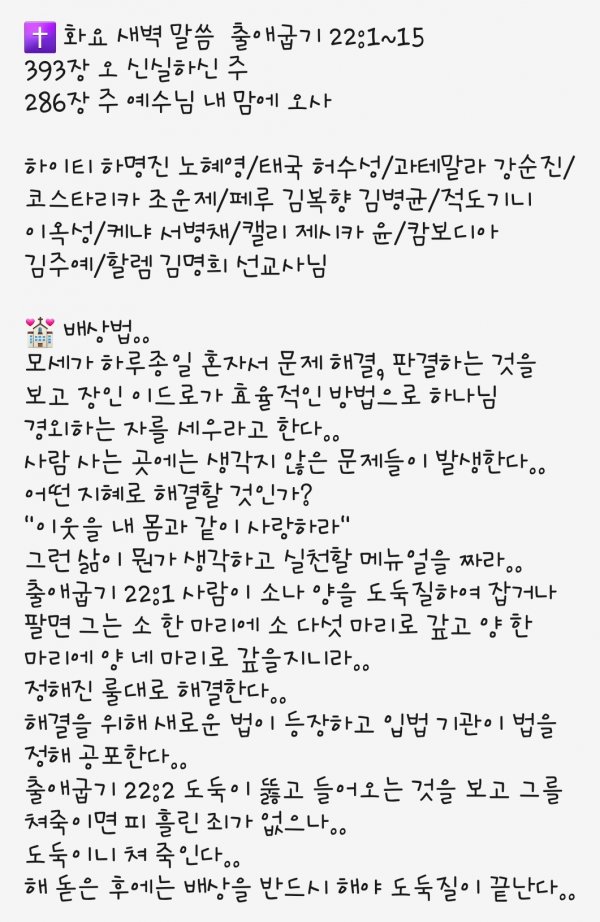 ✝️ 화요 새벽 말씀  출애굽기 22:1~15
393장 오 신실하신 주
286장 주 예수님 내 맘에 오사
하이티 하명진 노혜영/태국 허수성/과테말라 강순진/
코스타리카 조운제/페루 김복향 김병균/적도기니
이옥성/케냐 서병채/캘리 제시카 윤/캄보디아
김주예/할렘 김명희 선교사님
💒 배상법..
모세가 하루종일 혼자서 문제 해결, 판결하는 것을
보고 장인 이드로가 효율적인 방법으로 하나님
경외하는 자를 세우라고 한다..
사람 사는 곳에는 생각지 않은 문제들이 발생한다..
어떤 지혜로 해결할 것인가?
"이웃을 내 몸과 같이 사랑하라"
그런 삶이 뭔가 생각하고 실천할 메뉴얼을 짜라..
출애굽기 22:1 사람이 소나 양을 도둑질하여 잡거나
팔면 그는 소 한 마리에 소 다섯 마리로 갚고 양 한
마리에 양 네 마리로 갚을지니라..
정해진 룰대로 해결한다..
해결을 위해 새로운 법이 등장하고 입법 기관이 법을
정해 공포한다..
출애굽기 22:2 도둑이 뚫고 들어오는 것을 보고 그를
쳐죽이면 피 흘린 죄가 없으나..
도둑이니 쳐 죽인다..
해 돋은 후에는 배상을 반드시 해야 도둑질이 끝난다..